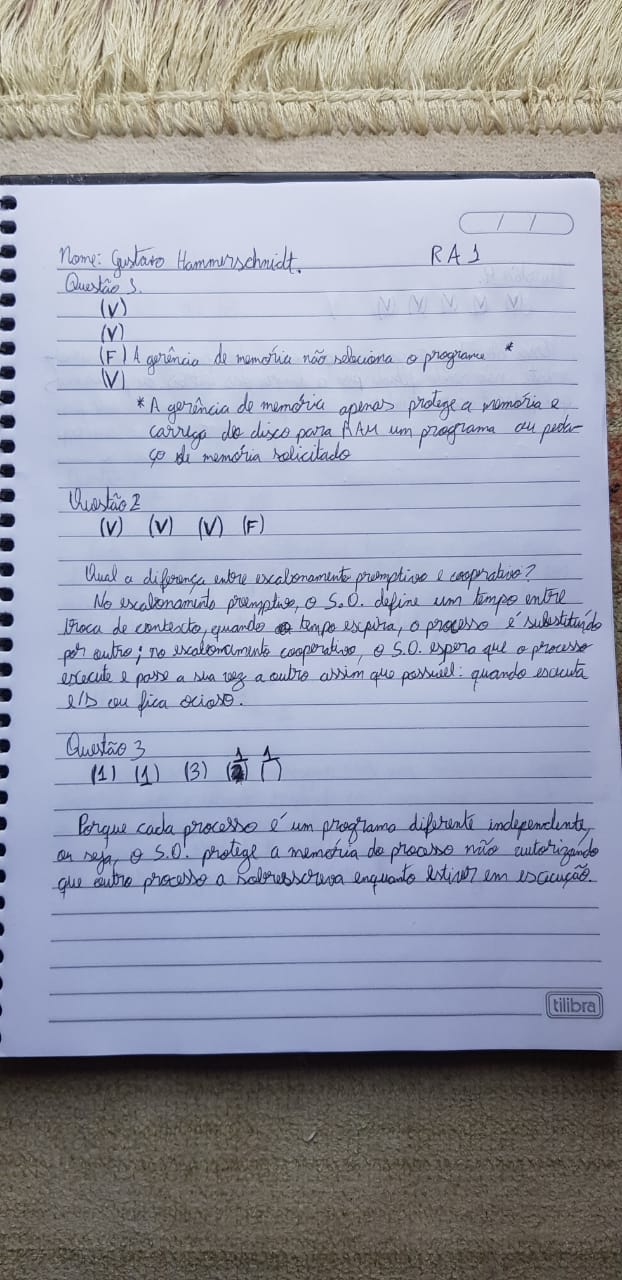 / /
Nome: Gustavo Hammerschmidt. RA1
Questão 1.
(V)
(V)
(F) A gerência de memória não seleciona o programa *
(V)
* A gerência de memória apenas protege a memória e
carrega do disco para RAM um programa ou peda-
ço de memória solicitado
Questão 2
(V) (V) (V) (F)
Qual a diferença entre escalonamento preemptivo e cooperativo?
No escalonamento preemptivo, o S.O. define um tempo entre
troca de contexto, quando tempo expira, o processo é substituído
por outro; no escalonamento cooperativo, o S.O. espera que o processo
execute e passe a sua vez a outro assim que possível: quando executa
e/s ou fica ocioso.
Questão 3
(1) (1) (3) (1) (1)
Porque cada processo é um programa diferente independente,
ou seja, o S.O. protege a memória do processo não autorizando
que outro processo a sobresscreva enquanto estiver em execução.
tilibra